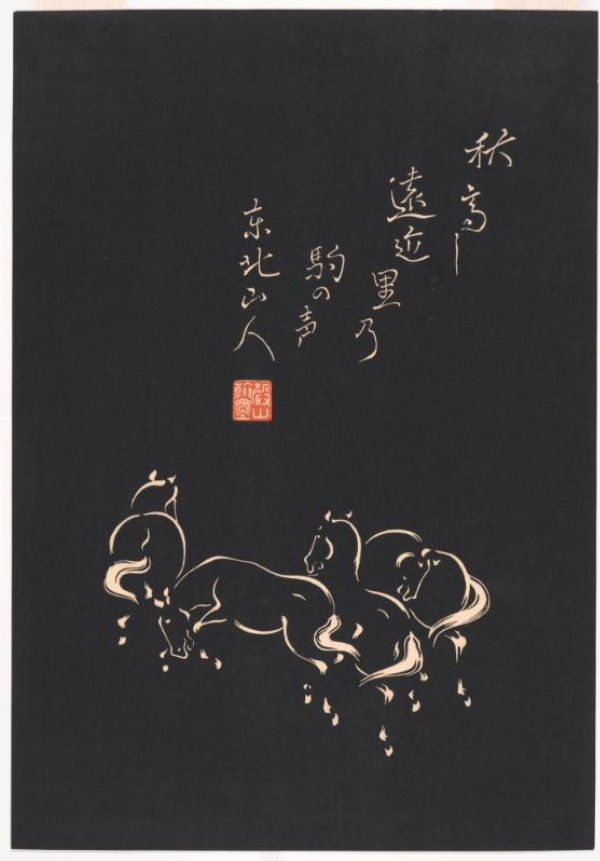 秋高し
遠近里乃
駒の声
東北山人